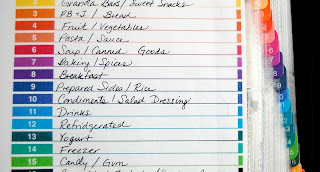 2 Granola Bars / Sweet Snacks
3 PB+J / Bread
4 Fruit / Vegetables
5 Pasta / Sauce
6 Soup / Canned Goods
7 Baking / Spices
8 Breakfast
9 Prepared Sides / Rice
10 Condiments / Salad Dressing
11 Drinks
12 Refridgerated
13 Yogurt
14 Freezer
15 Candy / Gum